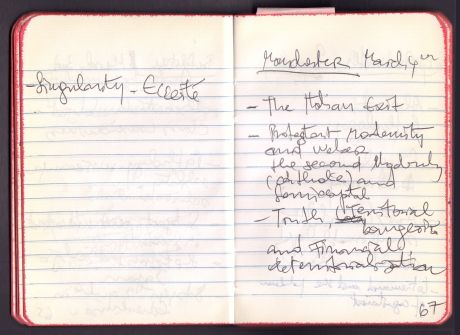 - Singularity - Ecceité
Manchester March 4th
- The Italian
- Protestant Modernity
and Weber
the second Modernity
(catholic) and
semiocapital
- Truth, Territorial
bourgeoisie
and Financial
deterritorialization
67